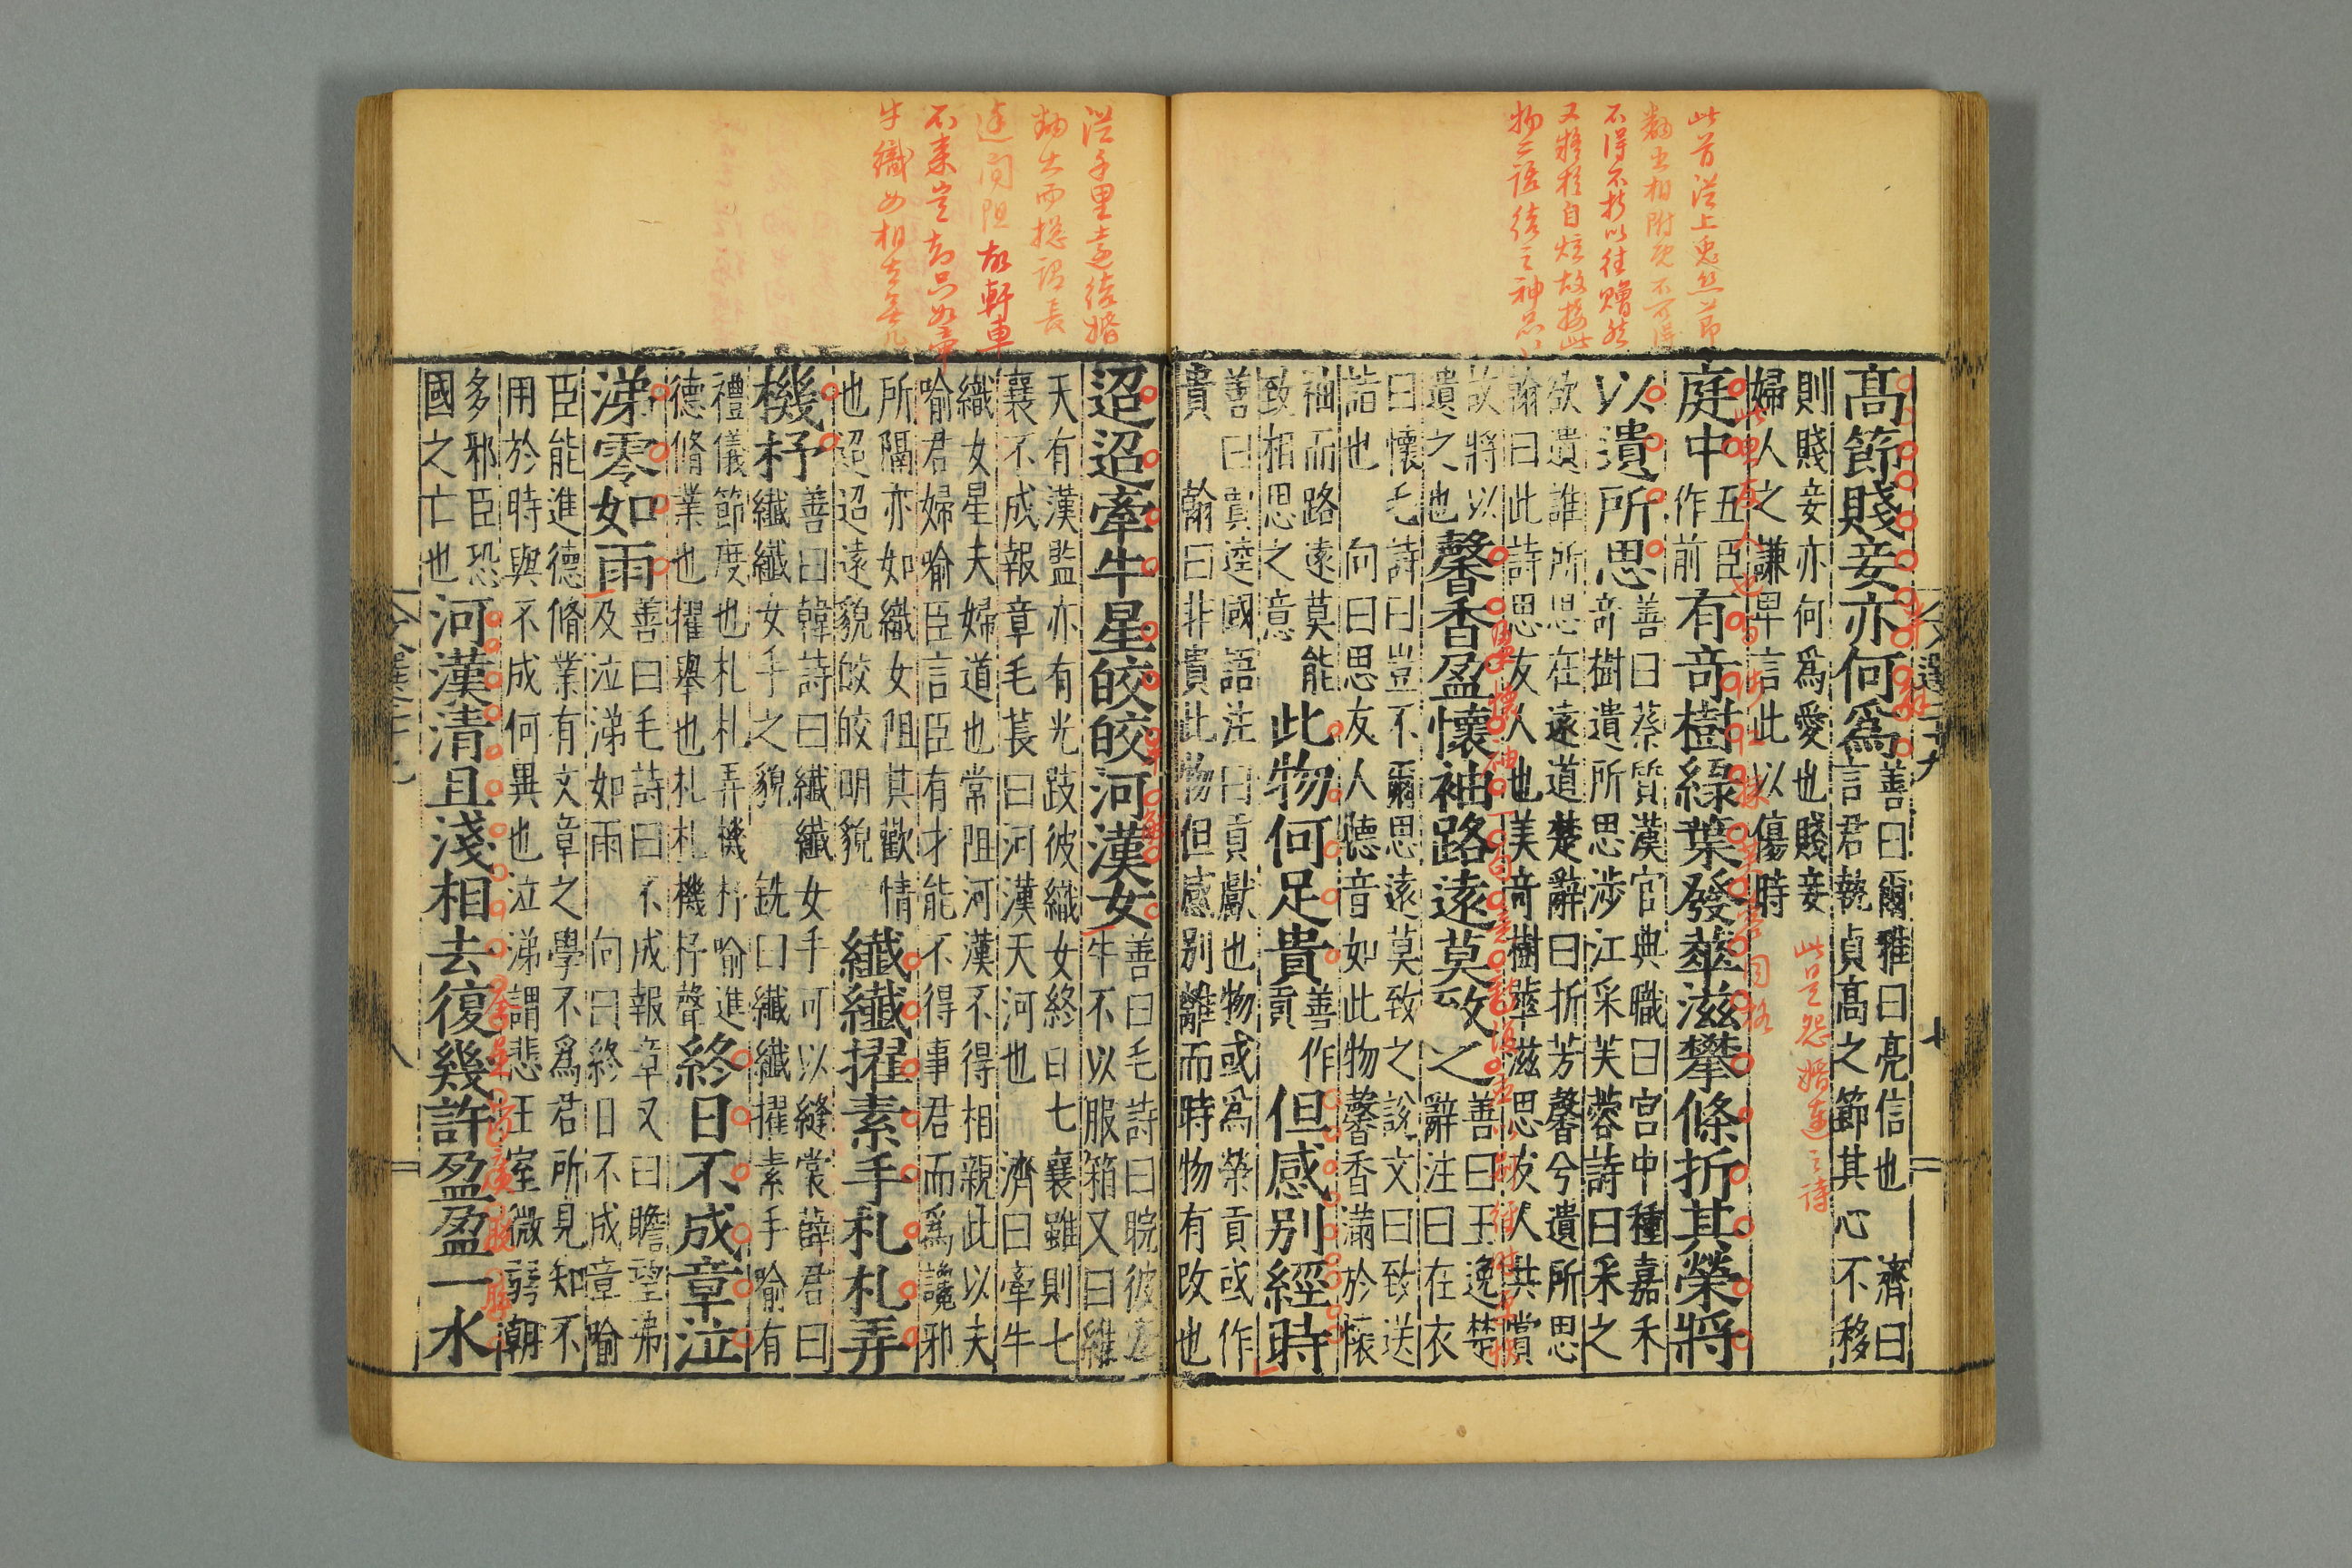 此首從上兎絲節
不得不折以往贈然
物二語結之神品
文選二十九
高節賤妾亦何爲
善曰爾雅曰亮信也 濟曰
言君執貞高之節其心不移
則賤妾亦何爲愛也賤妾
婦人之謙卑言此以傷時
此是怨婚遲之詩
庭中
五臣
作前
有竒樹緑葉發華滋攀條折其榮將
以遺所思
善曰蔡質漢官典職曰宮中種嘉禾
竒樹遺所思涉江采芙蓉詩曰采之
欲遺誰所思在遠道楚辭曰折芳馨兮遺所思
翰曰此詩思友人也美竒樹華滋思友人共賞
故將以
遺之也
馨香盈懷袖路遠莫致之
善曰王逸楚
辭注曰在衣
曰懷毛詩曰豈不爾思遠莫致之說文曰致送
詣也 向曰思友人聽音如此物馨香滿於懷
袖而路遠莫能
致相思之意
此物何足貴
善作
貢
但感别經時
善曰賈逵國語注曰貢獻也物或爲榮貢或作
貴 翰曰非貴此物但感别離而時物有改也
從千里遠結婚
翻出而總謂長
途間阻 故軒車
不來豈知只如牽
牛織女相去無幾
迢迢牽牛星皎皎河漢女
善曰毛詩曰睆彼牽
牛不以服箱又曰維
天有漢監亦有光跂彼織女終日七襄雖則七
襄不成報章毛萇曰河漢天河也 濟曰牽牛
織女星夫婦道也常阻河漢不得相親此以夫
喻君婦喻臣言臣有才能不得事君而爲讒邪
所隔亦如織女阻其歡情
也迢迢遠貌皎皎明貌
纖纖擢素手札札弄
機杼
善曰韓詩曰纖纖女手可以縫裳薛君曰
纖纖女手之貌 銑曰纖纖擢素手喻有
禮儀節度也札札弄機杼喻進
德脩業也擢舉也札札機杼聲
終日不成章泣
涕零如雨
善曰毛詩曰不成報章又曰瞻望弗
及泣涕如雨 向曰終日不成章喻
臣能進德脩業有文章之學不爲君所見知不
用於時與不成何異也泣涕謂悲王室微弱朝
多邪臣恐
國之亡也
河漢清且淺相去復幾許盈盈一水